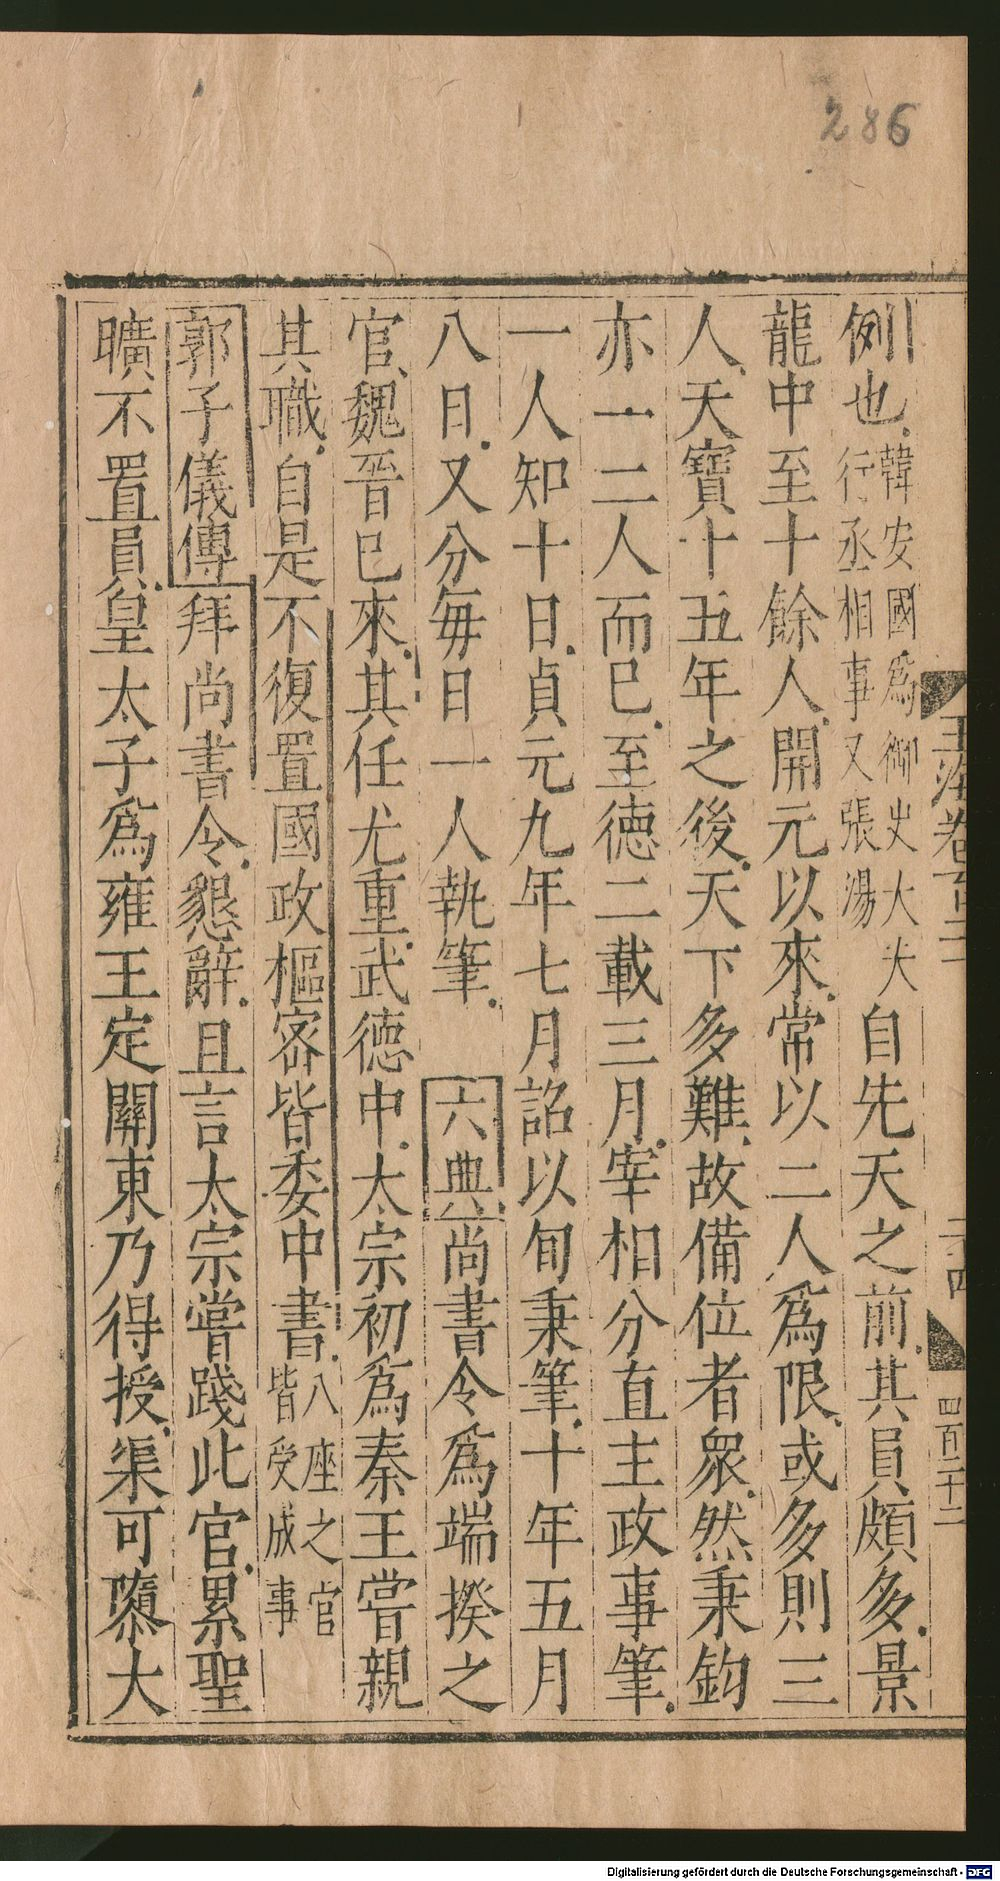 286
例也韓安國爲御史大夫行丞相事又張湯自先天之前其員頗多景
龍中至十餘人開元以來常以二人爲限或多則三
人天寶十五年之後天下多難故備位者衆然秉鈞
亦一二人而已至德二載三月宰相分直主政事筆
一人知十日貞元九年七月詔以旬秉筆十年五月
八日又分每日一人執筆 六典尚書令爲端揆之
官魏晉已來其任尤重武德中太宗初爲秦王嘗親
其職自是不復置國政樞密皆委中書八座之官皆受成事
郭子儀傳拜尚書令懇辭且言太宗嘗踐此官累聖
曠不置員皇太子爲雍王定關東乃得授渠可隳大
玉海卷
二十四
四百二十二
Digitalisierung gefördert durch die Deutsche Forschungsgemeinschaft - DFG